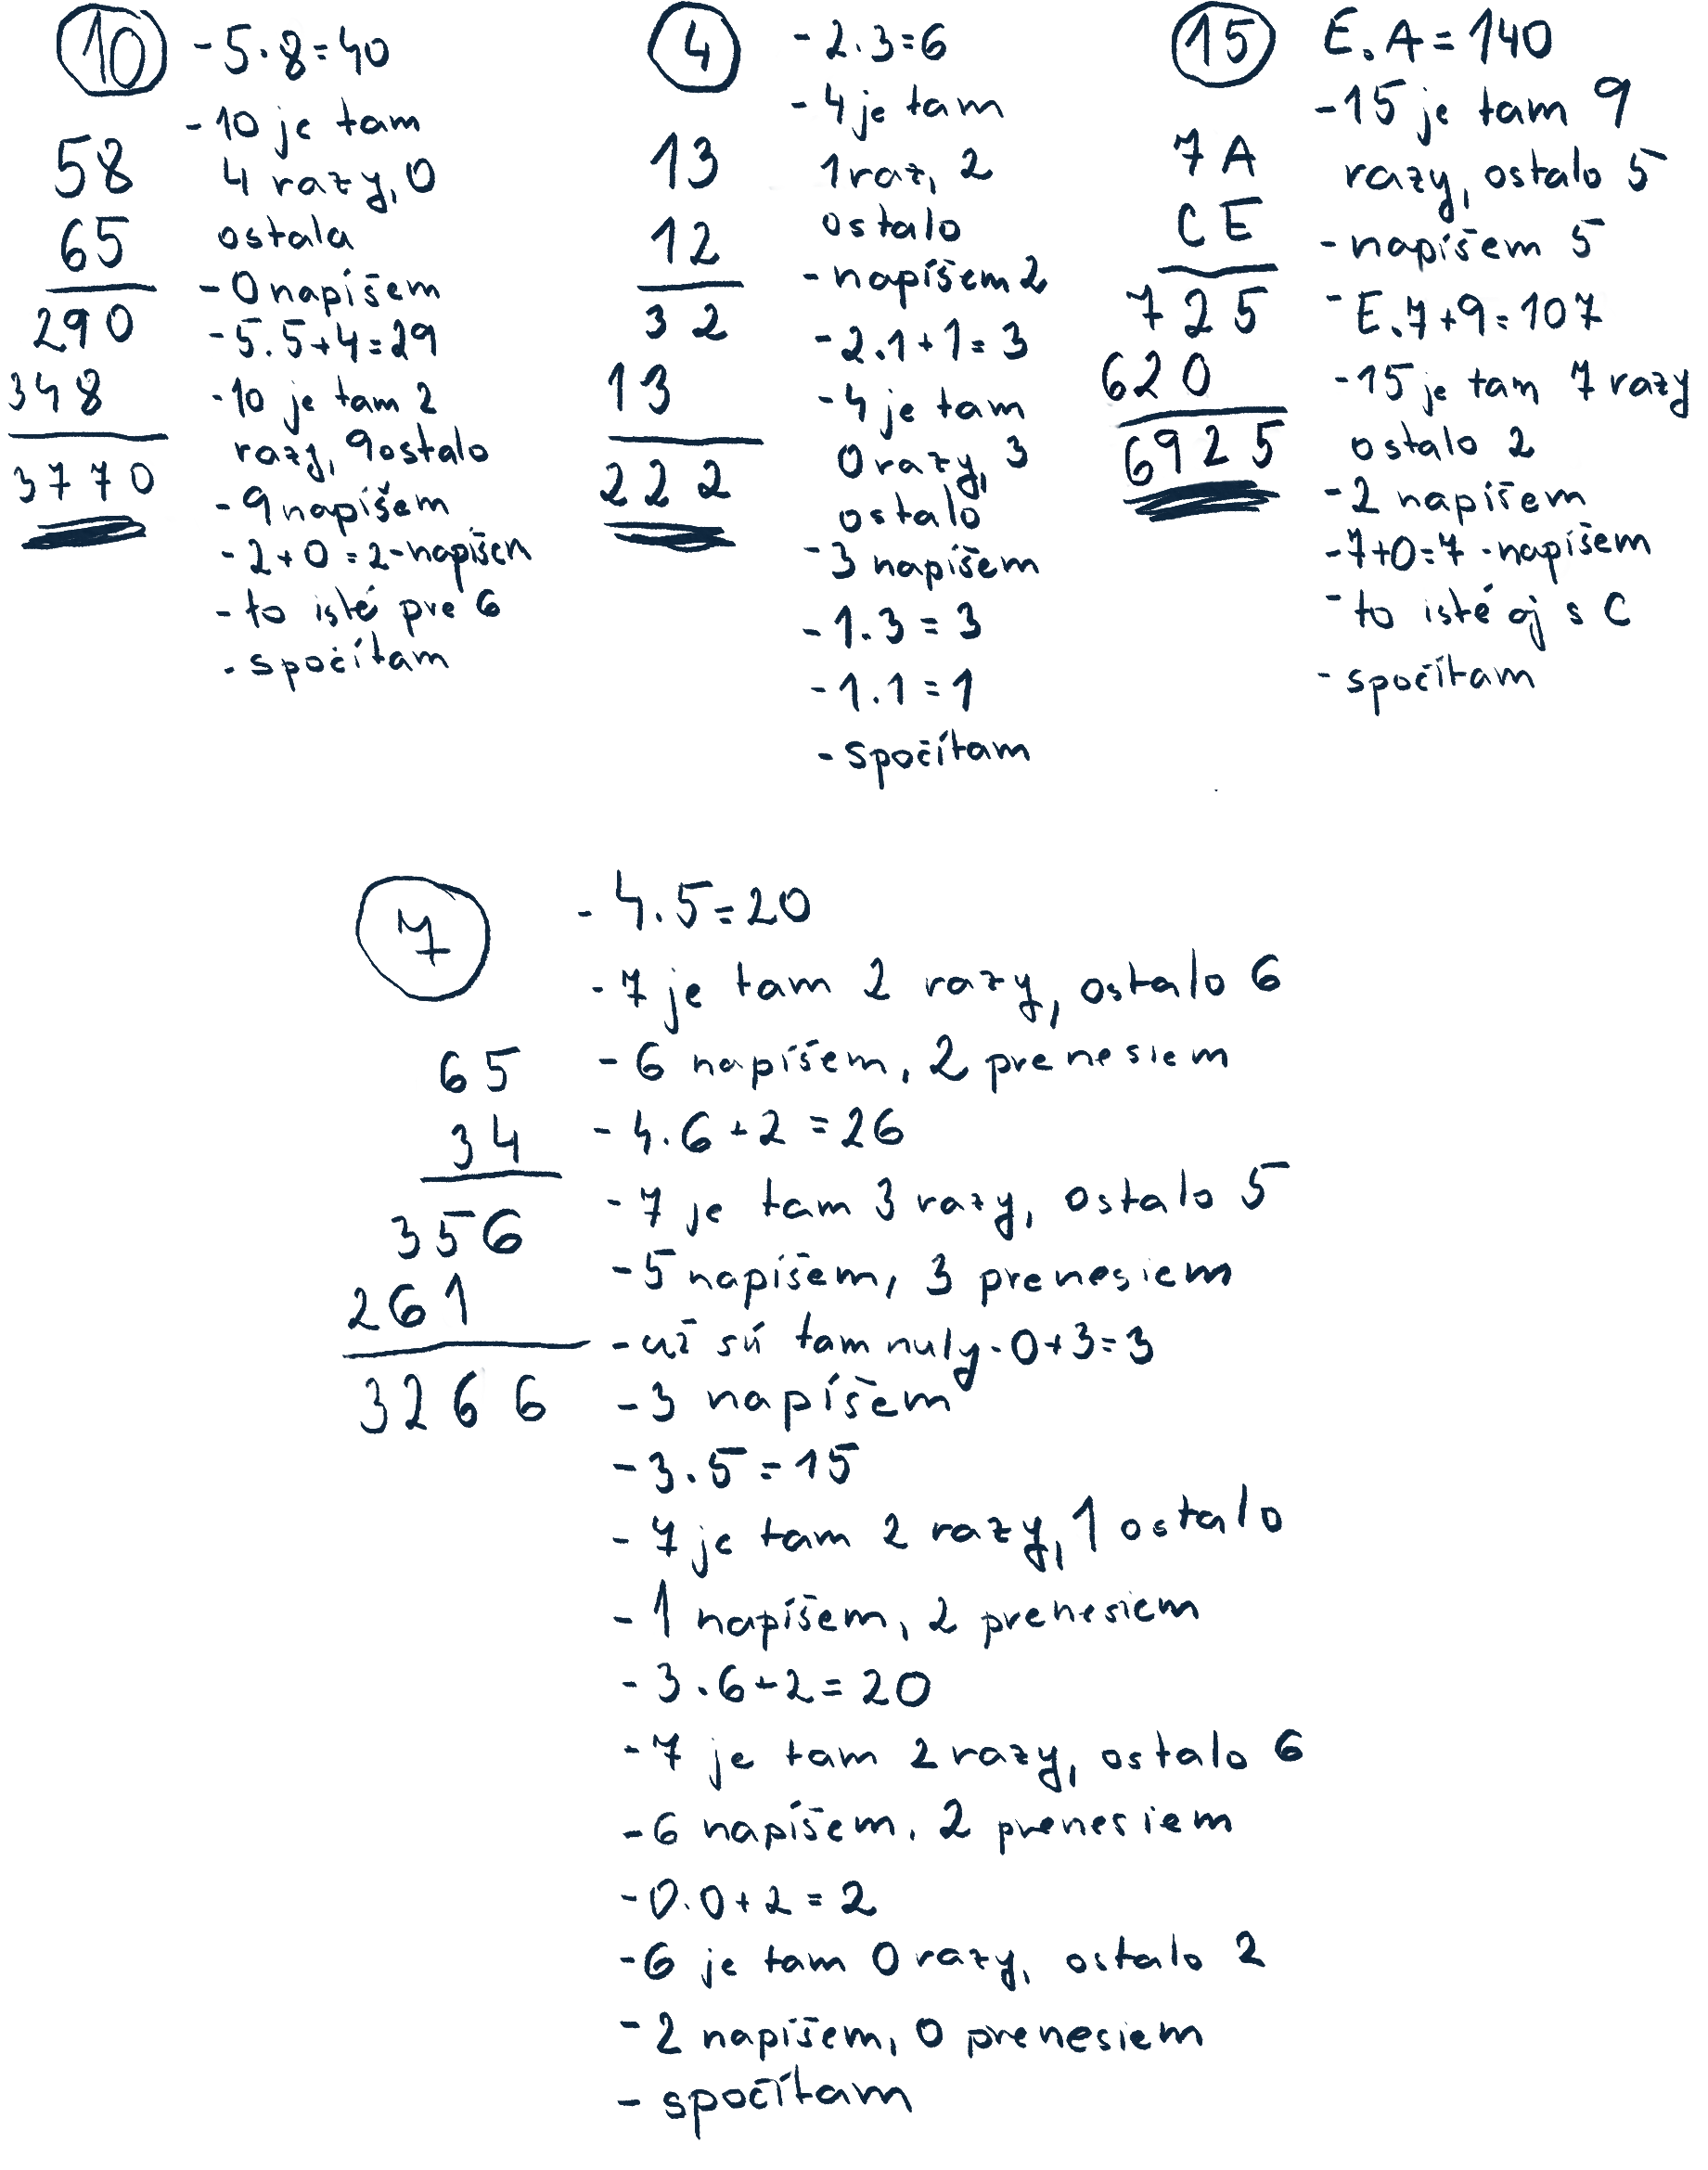 10
- 5.8=40
- 10 je tam
4 razy, 0
ostala
- 0 napíšem
- 5.5+4=29
- 10 je tam 2
razy, 9 ostalo
- 9 napíšem
- 2+0=2-napíšem
- to isté pre 6
- spočítam
58
65
290
348
3770
4
- 2.3=6
- 4 je tam
1 raz, 2
ostalo
- napíšem 2
- 2.1+1=3
- 4 je tam
0 razy, 3
ostalo
- 3 napíšem
- 1.3=3
- 1.1=1
- spočítam
13
12
32
13
222
15
E.A=140
- 15 je tam 9
razy, ostalo 5
- napíšem 5
- E.7+9=107
- 15 je tam 7 razy
ostalo 2
- 2 napíšem
- 7+0=7-napíšem
- to isté aj s C
- spočítam
7A
CE
725
620
6925
7
- 4.5=20
- 7 je tam 2 razy, ostalo 6
- 6 napíšem, 2 prenesiem
- 4.6+2=26
- 7 je tam 3 razy, ostalo 5
- 5 napíšem, 3 prenesiem
- už sú tam nuly-0+3=3
- 3 napíšem
- 3.5=15
- 7 je tam 2 razy, 1 ostalo
- 1 napíšem, 2 prenesiem
- 3.6+2=20
- 7 je tam 2 razy, ostalo 6
- 6 napíšem, 2 prenesiem
- 0.0+2=2
- 6 je tam 0 razy, ostalo 2
- 2 napíšem, 0 prenesiem
- spočítam
65
34
356
261
3266